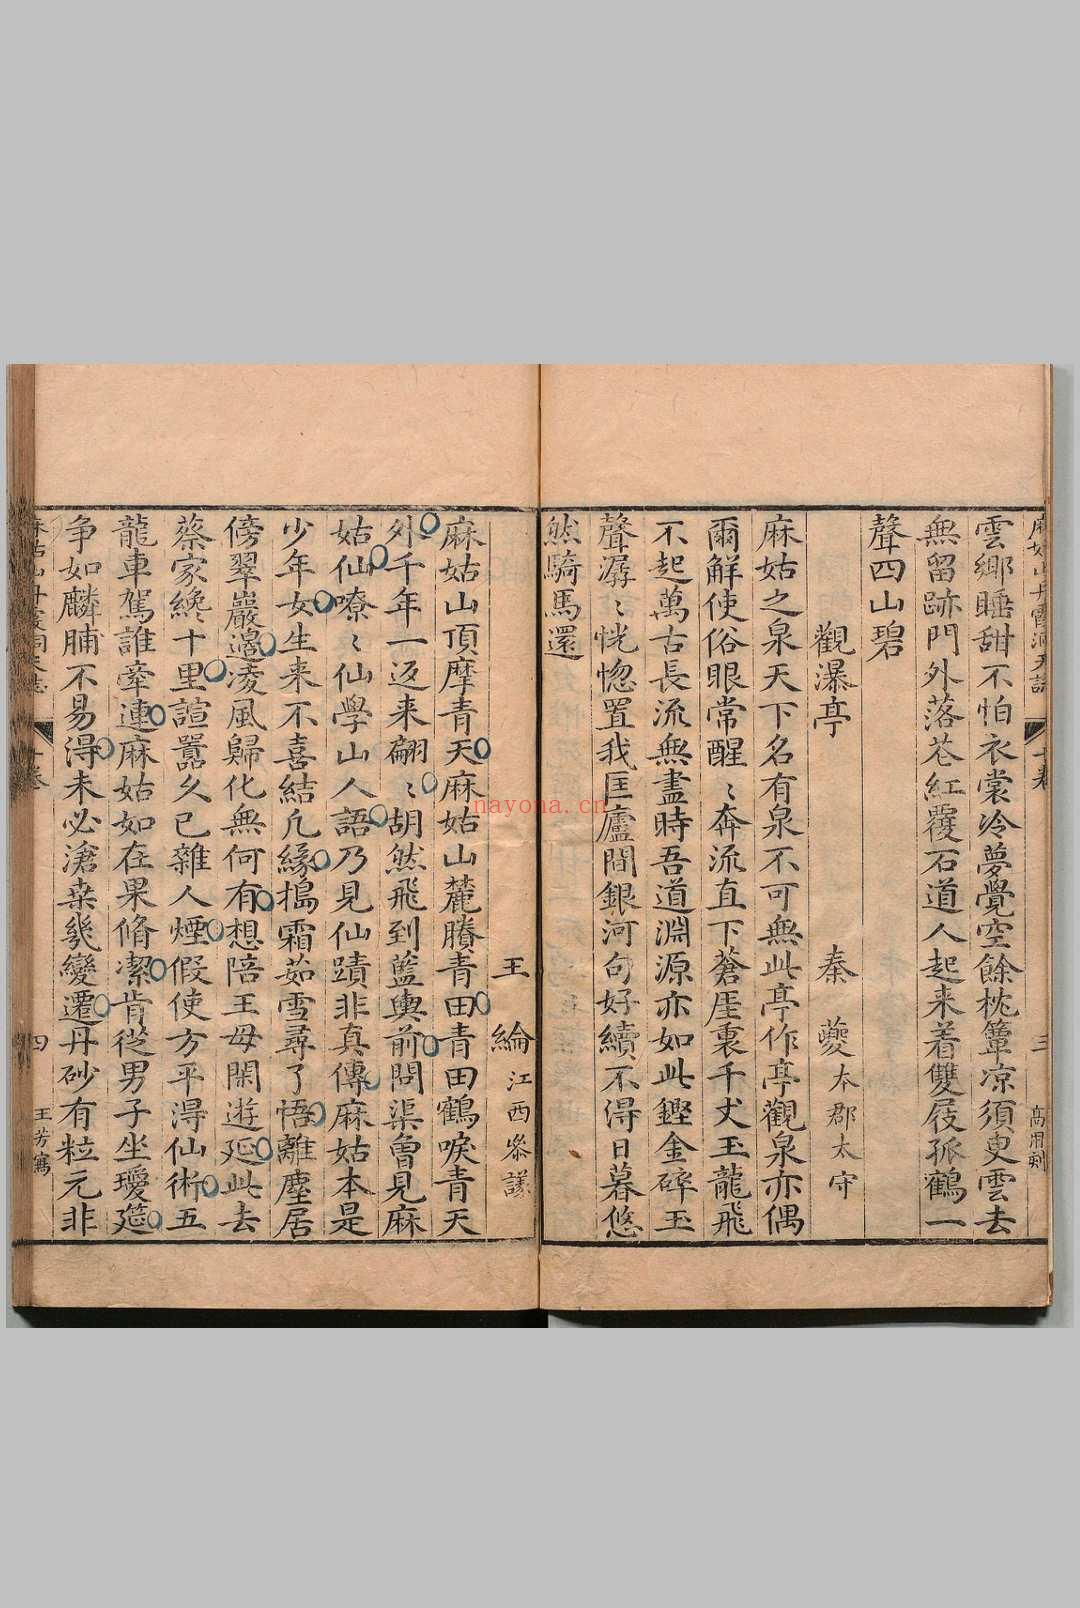 雲鄉睡甜不怕衣裳冷夢覺空餘枕簟凉須臾雲去
無留跡門外落花紅覆石道人起来着雙屐孤鶴一
聲四山碧
觀瀑亭
秦夔本郡太守
麻姑之泉天下名有泉不可無此亭作亭觀泉亦偶
爾解使俗眼常醒〻奔流直下蒼厓裏千丈玉龍飛
不起萬古長流無盡時吾道淵源亦如此鏗金碎玉
聲潺〻恍惚置我匡廬間銀河句好續不得日暮悠
然騎馬還
三
高用刻
王綸江西叅議
麻姑山頂摩青天麻姑山麓賸青田青田鶴唳青天
外千年一返来翩〻胡然飛到籃輿前問渠曾見麻
姑仙嘹〻仙學山人語乃見仙蹟非真傳麻姑本是
少年女生来不喜結凢緣搗霜茹雪尋了悟離塵居
傍翠巖邉淩風歸化無何有想陪王母閑遊延此去
蔡家纔十里諠囂久已雜人煙假使方平淂仙術五
龍車駕誰牽連麻姑如在果脩潔肯從男子坐瓊筵
争如麟脯不易淂未必滄桒幾變遷丹砂有粒元非
麻姑山丹霞洞天誌
十卷
四
王芳寫
nayona.cn